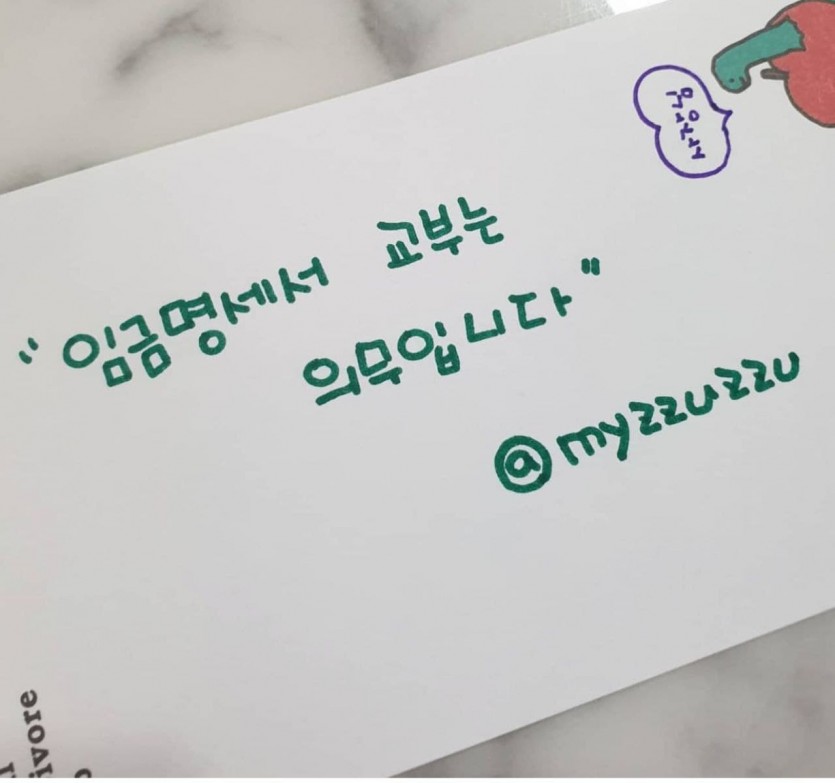 "임금명세서 교부는
의무입니다"
@myzzuzzu
ivore